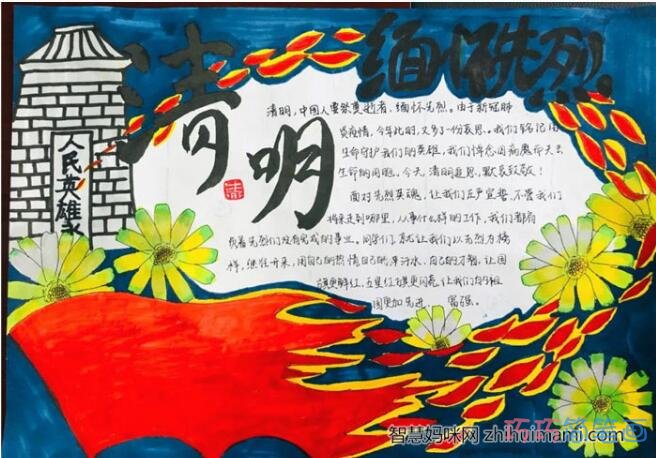 清明
缅怀先烈
人民英雄永
清
清明,中国人要祭奠逝者、缅怀先烈。由于新冠肺
炎疫情,今年此时,又多了一份哀思。我们铭记用
生命守护我们的英雄,我们悼念因病魔而失去
生命的同胞。今天,清明追思,默哀致敬!
面对先烈英魂,让我们庄严宣誓,不管我们
将来走到哪里,从事什么样的工作,我们都肩
负着先烈们没有完成的事业。同学们,就让我们以先烈为榜
样,继往开来,用自己的热情自己的辛汗水,自己的才智,让国
旗更鲜红,五星红旗更闪亮,让我们的祖
国更加先进 富强。
智慧妈咪网 zhihuimami.com